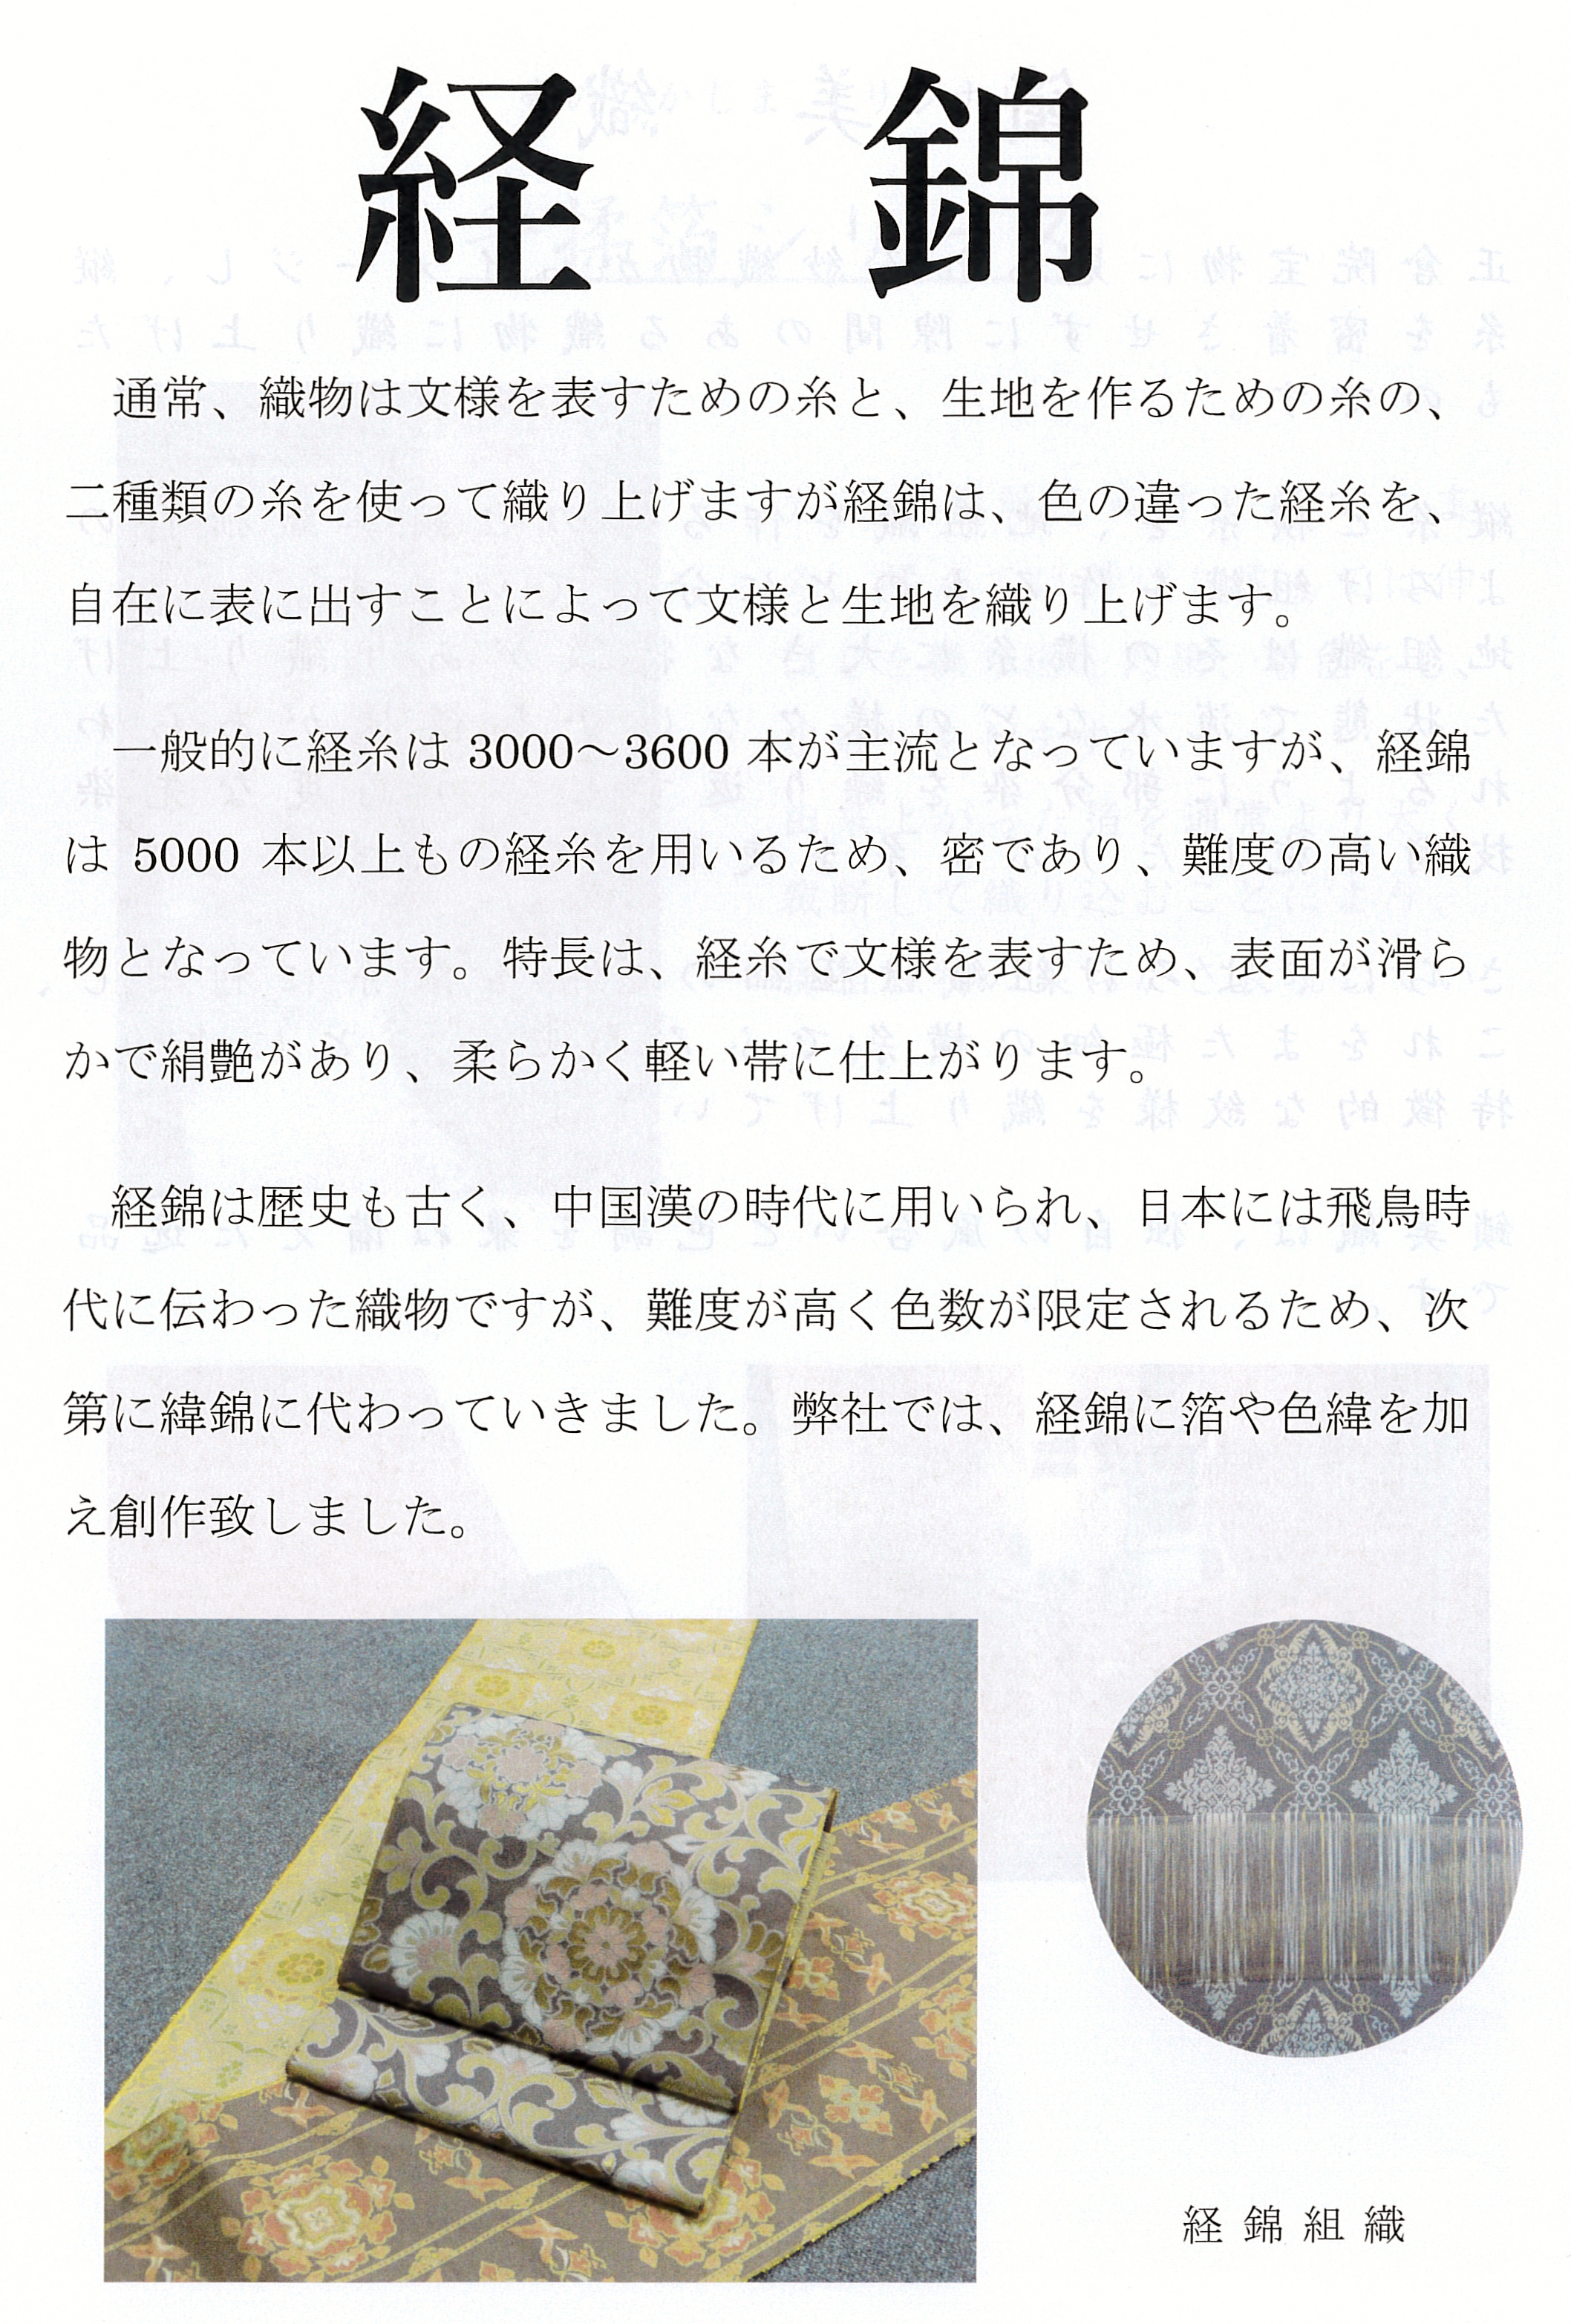 経 錦
通常、織物は文様を表すための糸と、生地を作るための糸の、
二種類の糸を使って織り上げますが経錦は、色の違った経糸を、
自在に表に出すことによって文様と生地を織り上げます。
一般的に経糸は 3000～3600 本が主流となっていますが、経錦
は 5000 本以上もの経糸を用いるため、密であり、難度の高い織
物となっています。特長は、経糸で文様を表すため、表面が滑ら
かで絹艶があり、柔らかく軽い帯に仕上がります。
経錦は歴史も古く、中国漢の時代に用いられ、日本には飛鳥時
代に伝わった織物ですが、難度が高く色数が限定されるため、次
第に緯錦に代わっていきました。弊社では、経錦に箔や色緯を加
え創作致しました。
経錦組織